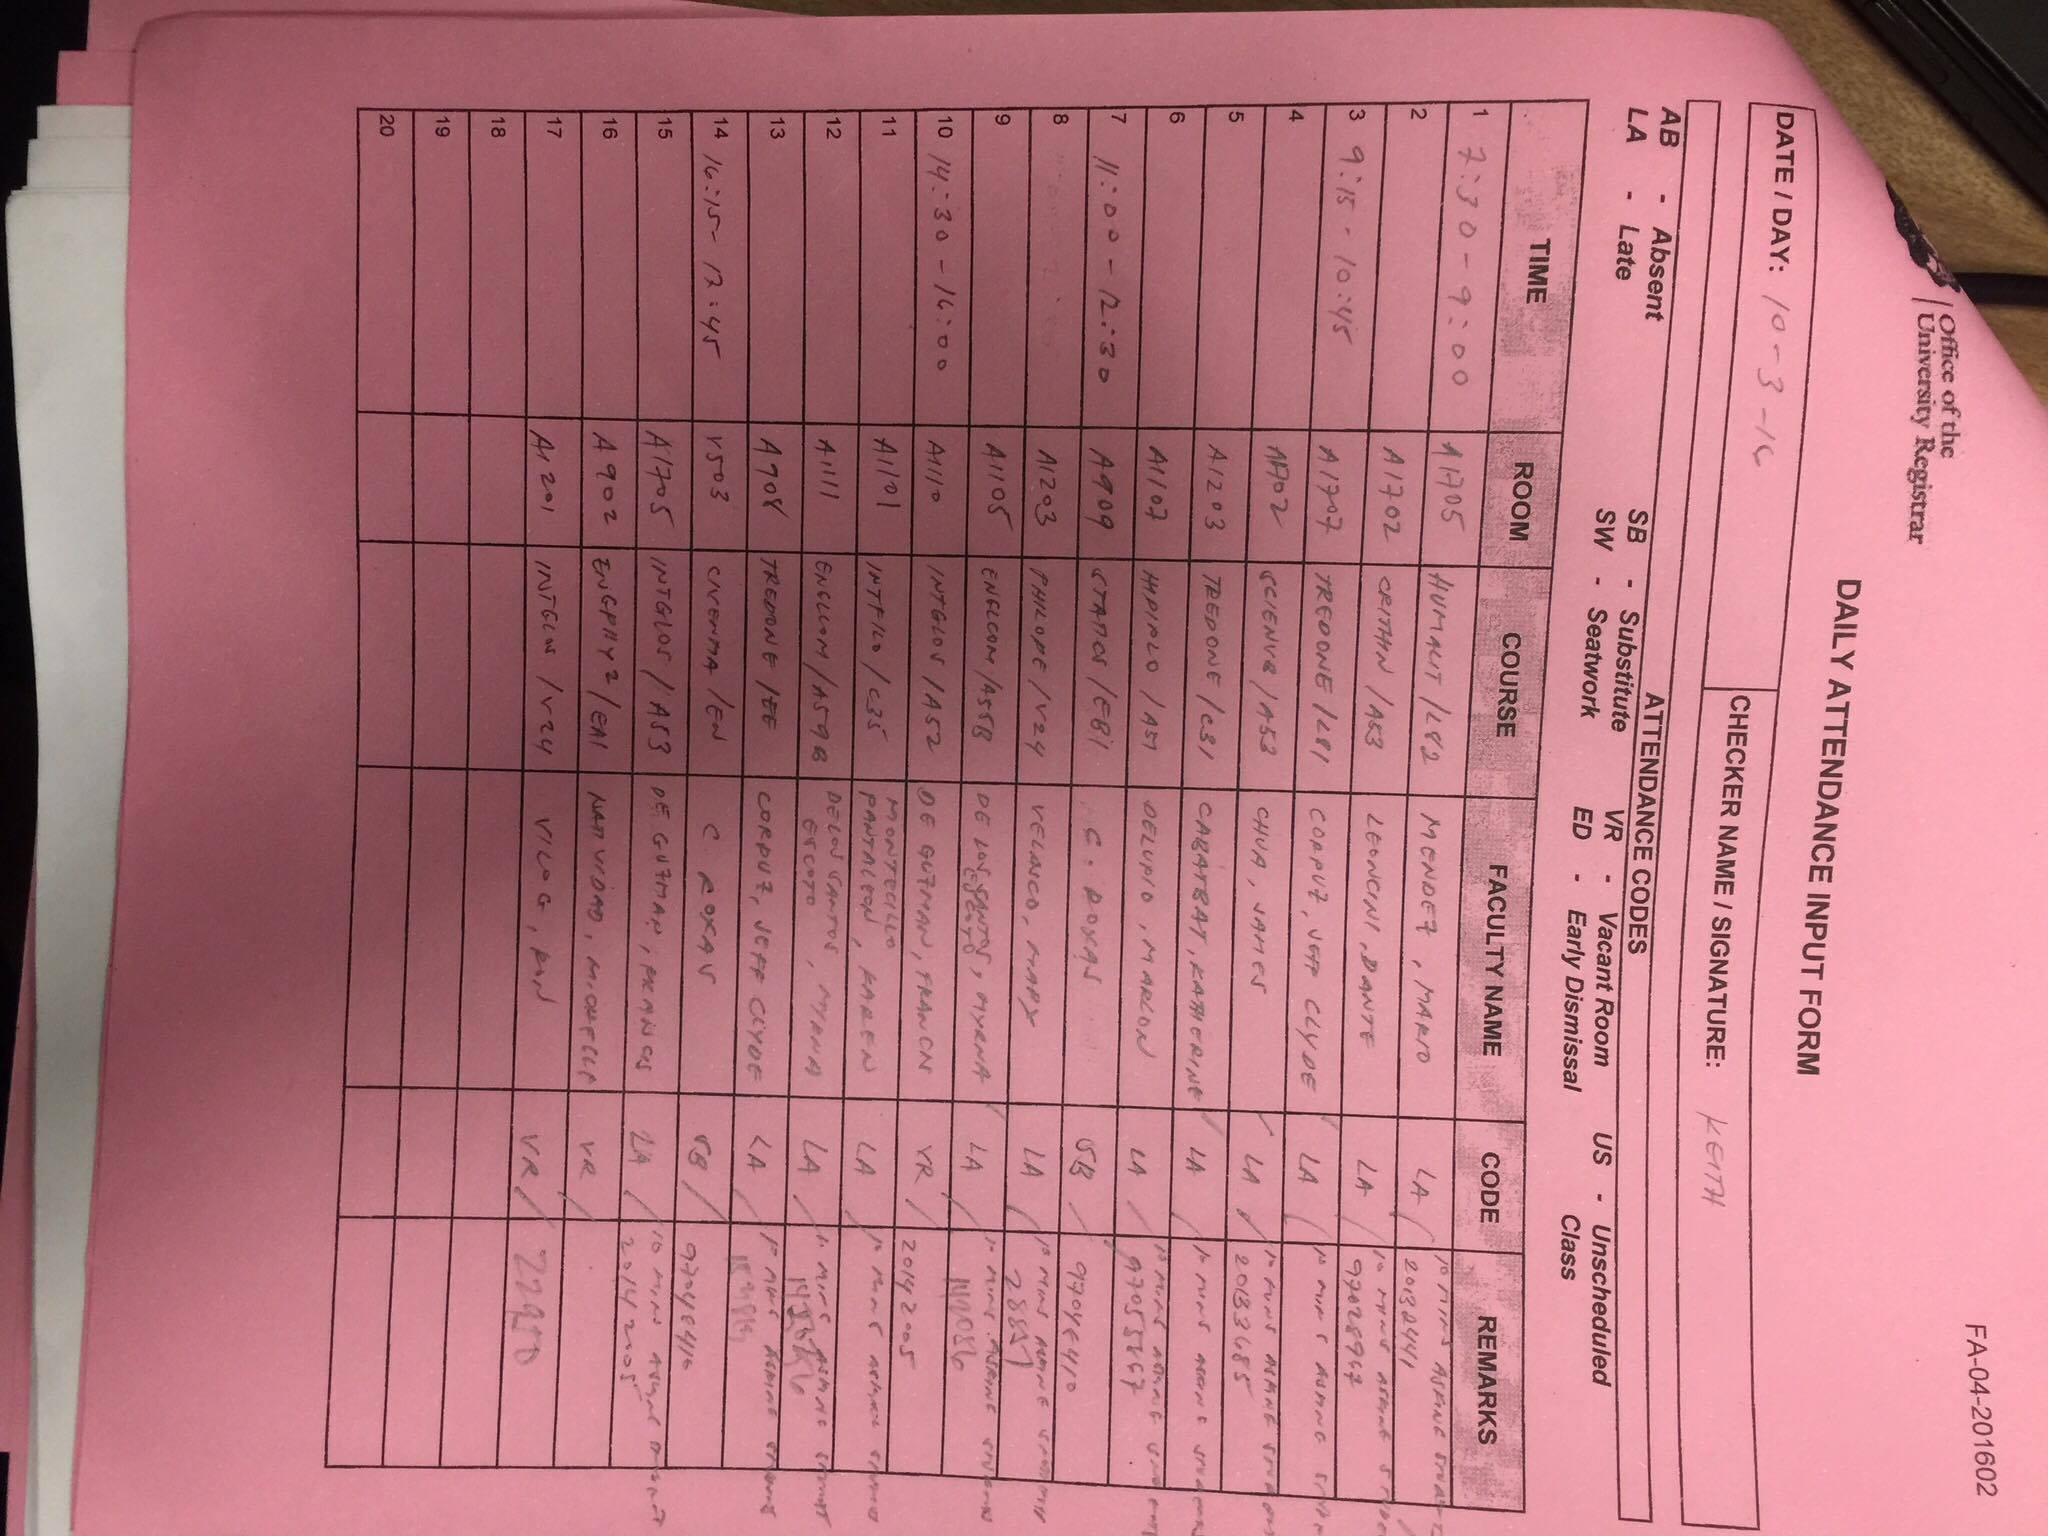 FA-04-201602
Office of the
University Registrar
DAILY ATTENDANCE INPUT FORM
DATE / DAY: 10-3-16
CHECKER NAME / SIGNATURE: KEITH
ATTENDANCE CODES
AB - Absent SB - Substitute VR - Vacant Room US - Unscheduled Class
LA - Late SW - Seatwork ED - Early Dismissal
TIME ROOM COURSE FACULTY NAME CODE REMARKS
1 7:30-9:00 A1705 HUMALIT/L82 MENDEZ, MARIO LA 10 MINS ASKING
20132441
2 A1702 CRITHIN/A53 LEONCINI, DANTE LA 10 MINS ASKING
97028967
3 9:15-10:45 A1707 TREDONE/L81 CORPUZ, JEFF CLYDE LA 10 MINS ASKING
4 A1702 SCIENVB/A53 CHUA, JAMES LA 10 MINS ASKING
20133685
5 A1203 TREDONE/C31 CABATBAT, KATHERINE LA 10 MINS ASKING STUDENTS
6 A1107 A51 DELUPIO, MARLON LA 10 MINS ASKING
7 11:00-12:30 A909 STATICS/EB1 C. ROXAS SB 9704E410
8 A1203 PHILOPE/V24 VELASCO, MARY LA 10 MINS ASKING STUDENTS
28857
9 A1105 ENGLCOM/A55B DE LOS SANTOS ESCOTO, MYRNA LA 10 MINS ASKING STUDENTS
142086
10 14:30-16:00 A1110 INTGLOS/A52 DE GUZMAN, FRANCIS VR 20142005
11 A1101 INTFILO/C35 MONTECILLO PANTALEON, KAREN LA 10 MINS ASKING
12 A1111 ENGLCOM/A59B DE LOS SANTOS ESCOTO, MYRNA LA 10 MINS ASKING STUDENT
13 A908 TREDONE/EE CORPUZ, JEFF CLYDE LA 10 MINS ASKING
14 16:15-17:45 V503 CIVENMA/EN C ROXAS SB 9704E410
15 A1705 INTGLOS/A53 DE GUZMAN, FRANCIS LA 10 MINS ASKING
20142005
16 A902 ENGPHY2/EA1 NATIVIDAD, MICHELLE VR
17 A1201 INTGLOS/V24 VILOG, RON VR 22950
18
19
20